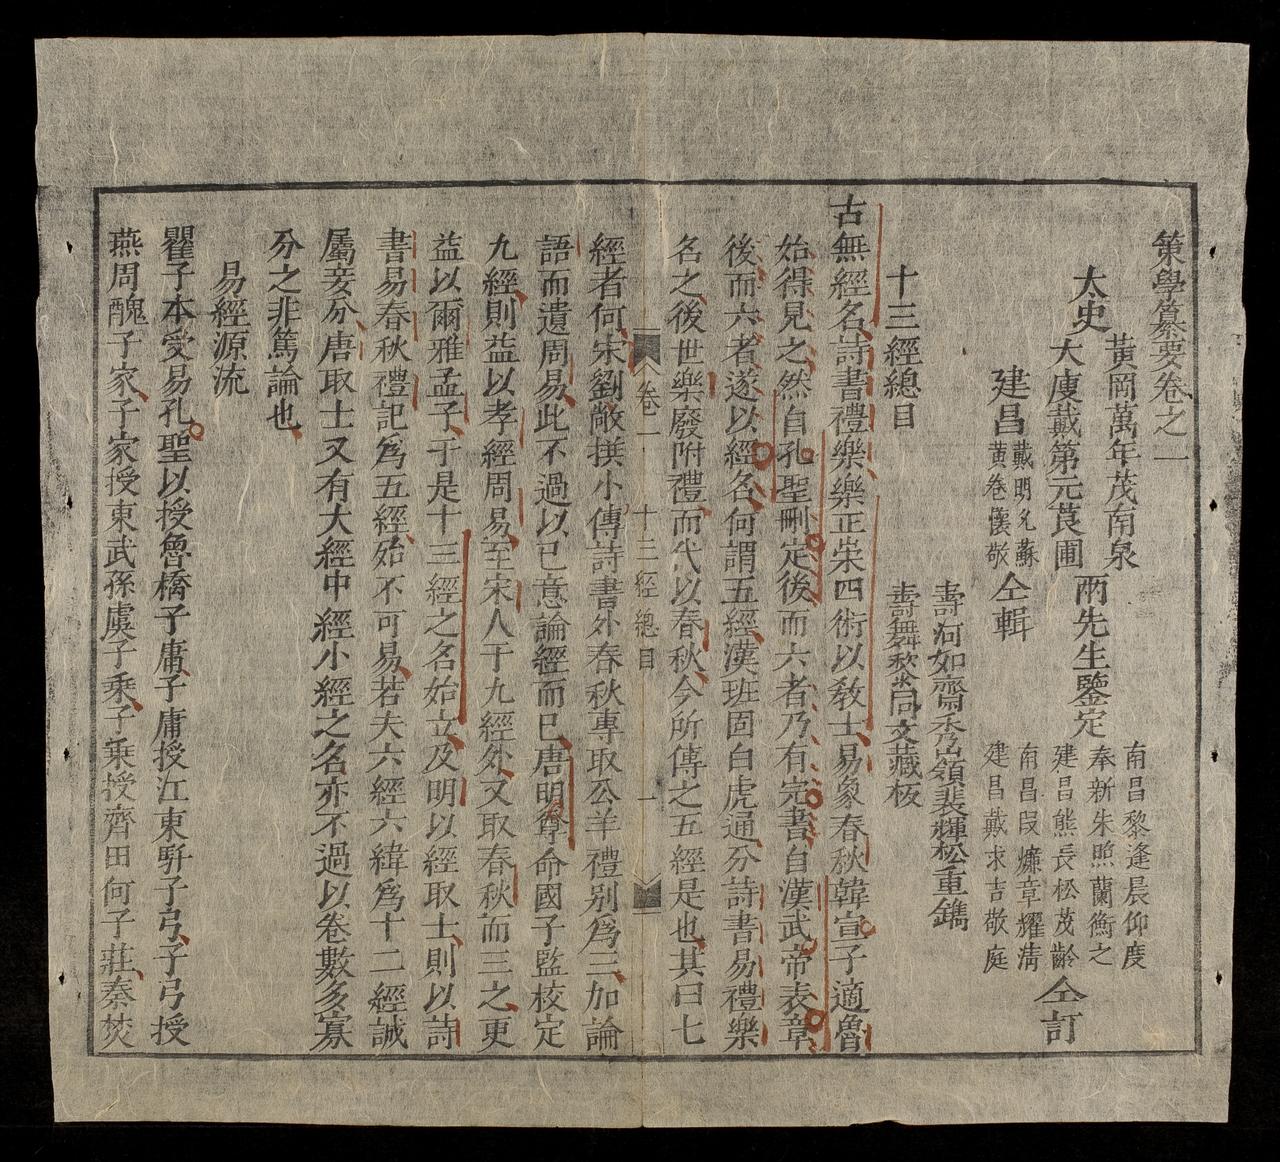 策學纂要卷之一
黃岡萬年茂南泉
太史
大庾戴第元莨圃
兩先生鑒定
建昌
戴明允蘇
黃卷懷敬
仝輯
南昌黎逢晨仰度
奉新朱煦蘭衡之
建昌熊長松茂齡
南昌段爌章耀清
建昌戴求吉敬庭
仝訂
壽河如齋秀嶺裴輝松重鐫
壽舞黎同文藏板
十三經總目
古無經名詩書禮樂樂正崇四術以敎士易象春秋韓宣子適魯
始得見之然自孔聖刪定後而六者乃有完書自漢武帝表章
後而六者遂以經名何謂五經漢班固白虎通分詩書易禮樂
名之後世樂廢附禮而代以春秋今所傳之五經是也其曰七
卷一
十三經總目
一
經者何宋劉敞撰小傳詩書外春秋專取公羊禮别爲三加論
語而遺周易此不過以已意論經而已唐明尊命國子監校定
九經則益以孝經周易至宋人于九經外又取春秋而三之更
益以爾雅孟子于是十三經之名始立及明以經取士則以詩
書易春秋禮記爲五經始不可易若夫六經六緯爲十二經誠
屬妄分唐取士又有大經中經小經之名亦不過以卷數多寡
分之非篤論也
易經源流
瞿子本受易孔聖以授魯橋子庸子庸授江東馯子弓子弓授
燕周醜子家子家授東武孫虞子乘子乘授齊田何子莊秦焚